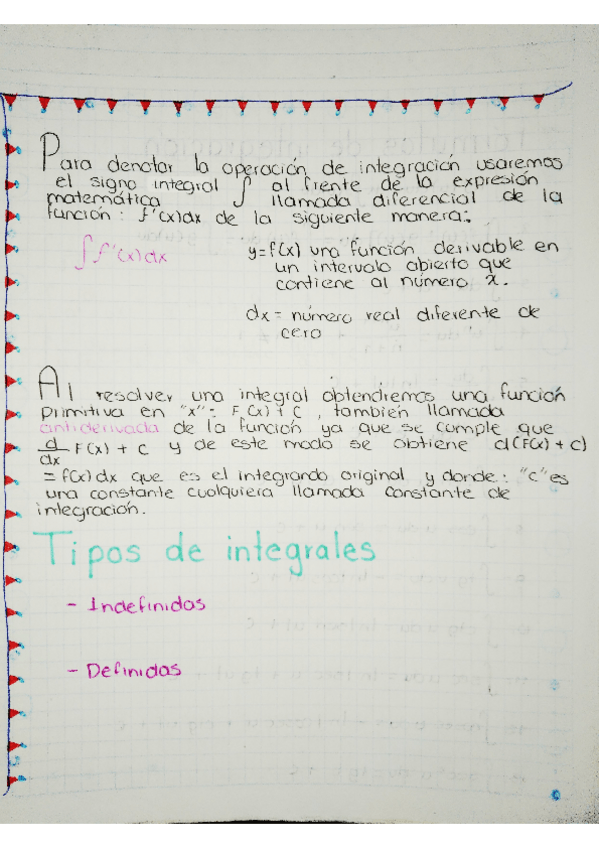 Para denotar la operación de integración usaremos
el signo integral ∫ al frente de la expresión
matemática llamada diferencial de la
función: f'(x)dx de la siguiente manera:
∫ f'(x)dx
y=f(x) una función derivable en
un intervalo abierto que
contiene al número x.
dx = número real diferente de
cero
Al resolver una integral obtendremos una función
primitiva en "x": F(x) + C, también llamada
antiderivada de la función ya que se cumple que
d/dx F(x) + C y de este modo se obtiene d(F(x) + c)
= f(x) dx que es el integrando original y donde: "c" es
una constante cualquiera llamada constante de
integración.
Tipos de integrales
- Indefinidas
- Definidas